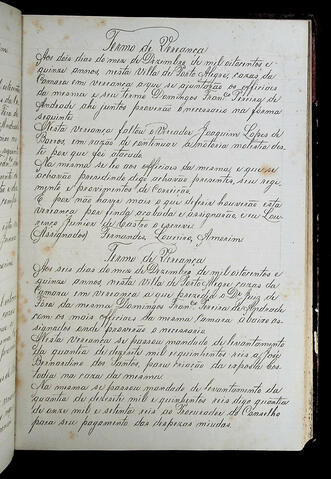 Termo de Verrança
Aos dois dias do mez de Dezembro de mil oitocentos e
quinze annos nesta Villa de Porto Alegre, cazas da
Camara em verrança aque se ajuntarão os officiaes
da mesma e seu termo Domingos Franco Pereira de
Andrade ahi juntos proverão o necessario na forma
seguinte
Nesta verrança faltou o Vereador Joaquim Lopes de
Barros, em razão de continuar a molestia des
te por que foi atacado.
Na mesma se leo aos officiaes da mesma, e que se
achavão prezidindo digo achavão prezentes, seu regi
mento e provimentos de Correição.
E por não haver mais o que diferir houverão esta
verrança por finda acabada e assignarão eu Lou
renço Junior de Castro o escrevi
(Assignados) Fernandes, Loureiro, Amorim
Termo de Verrança
Aos seis dias do mez de Dezembro de mil oitocentos e
quinze annos nesta Villa de Porto Alegre, cazas da
Camara em verrança a que prezidio o Dr Juiz de
Fora da mesma Domingos Franco Pereira de Andrade
com os mais officiaes da mesma Camara abaixo as-
signados onde proverão o necessario
Nesta verrança se passou mandado de levantamento
da quantia de dezeseis mil e quinhentos reis a José
Bernardino dos Santos, para criação da exposta Cus
todia na caza da mesma.
Na mesma se passou mandado de levantamento da
quantia de dezeseis mil e quinhentos reis digo quantia
de onze mil e setenta reis ao Procurador do Conselho
para seu pagamento das despezas miudas.